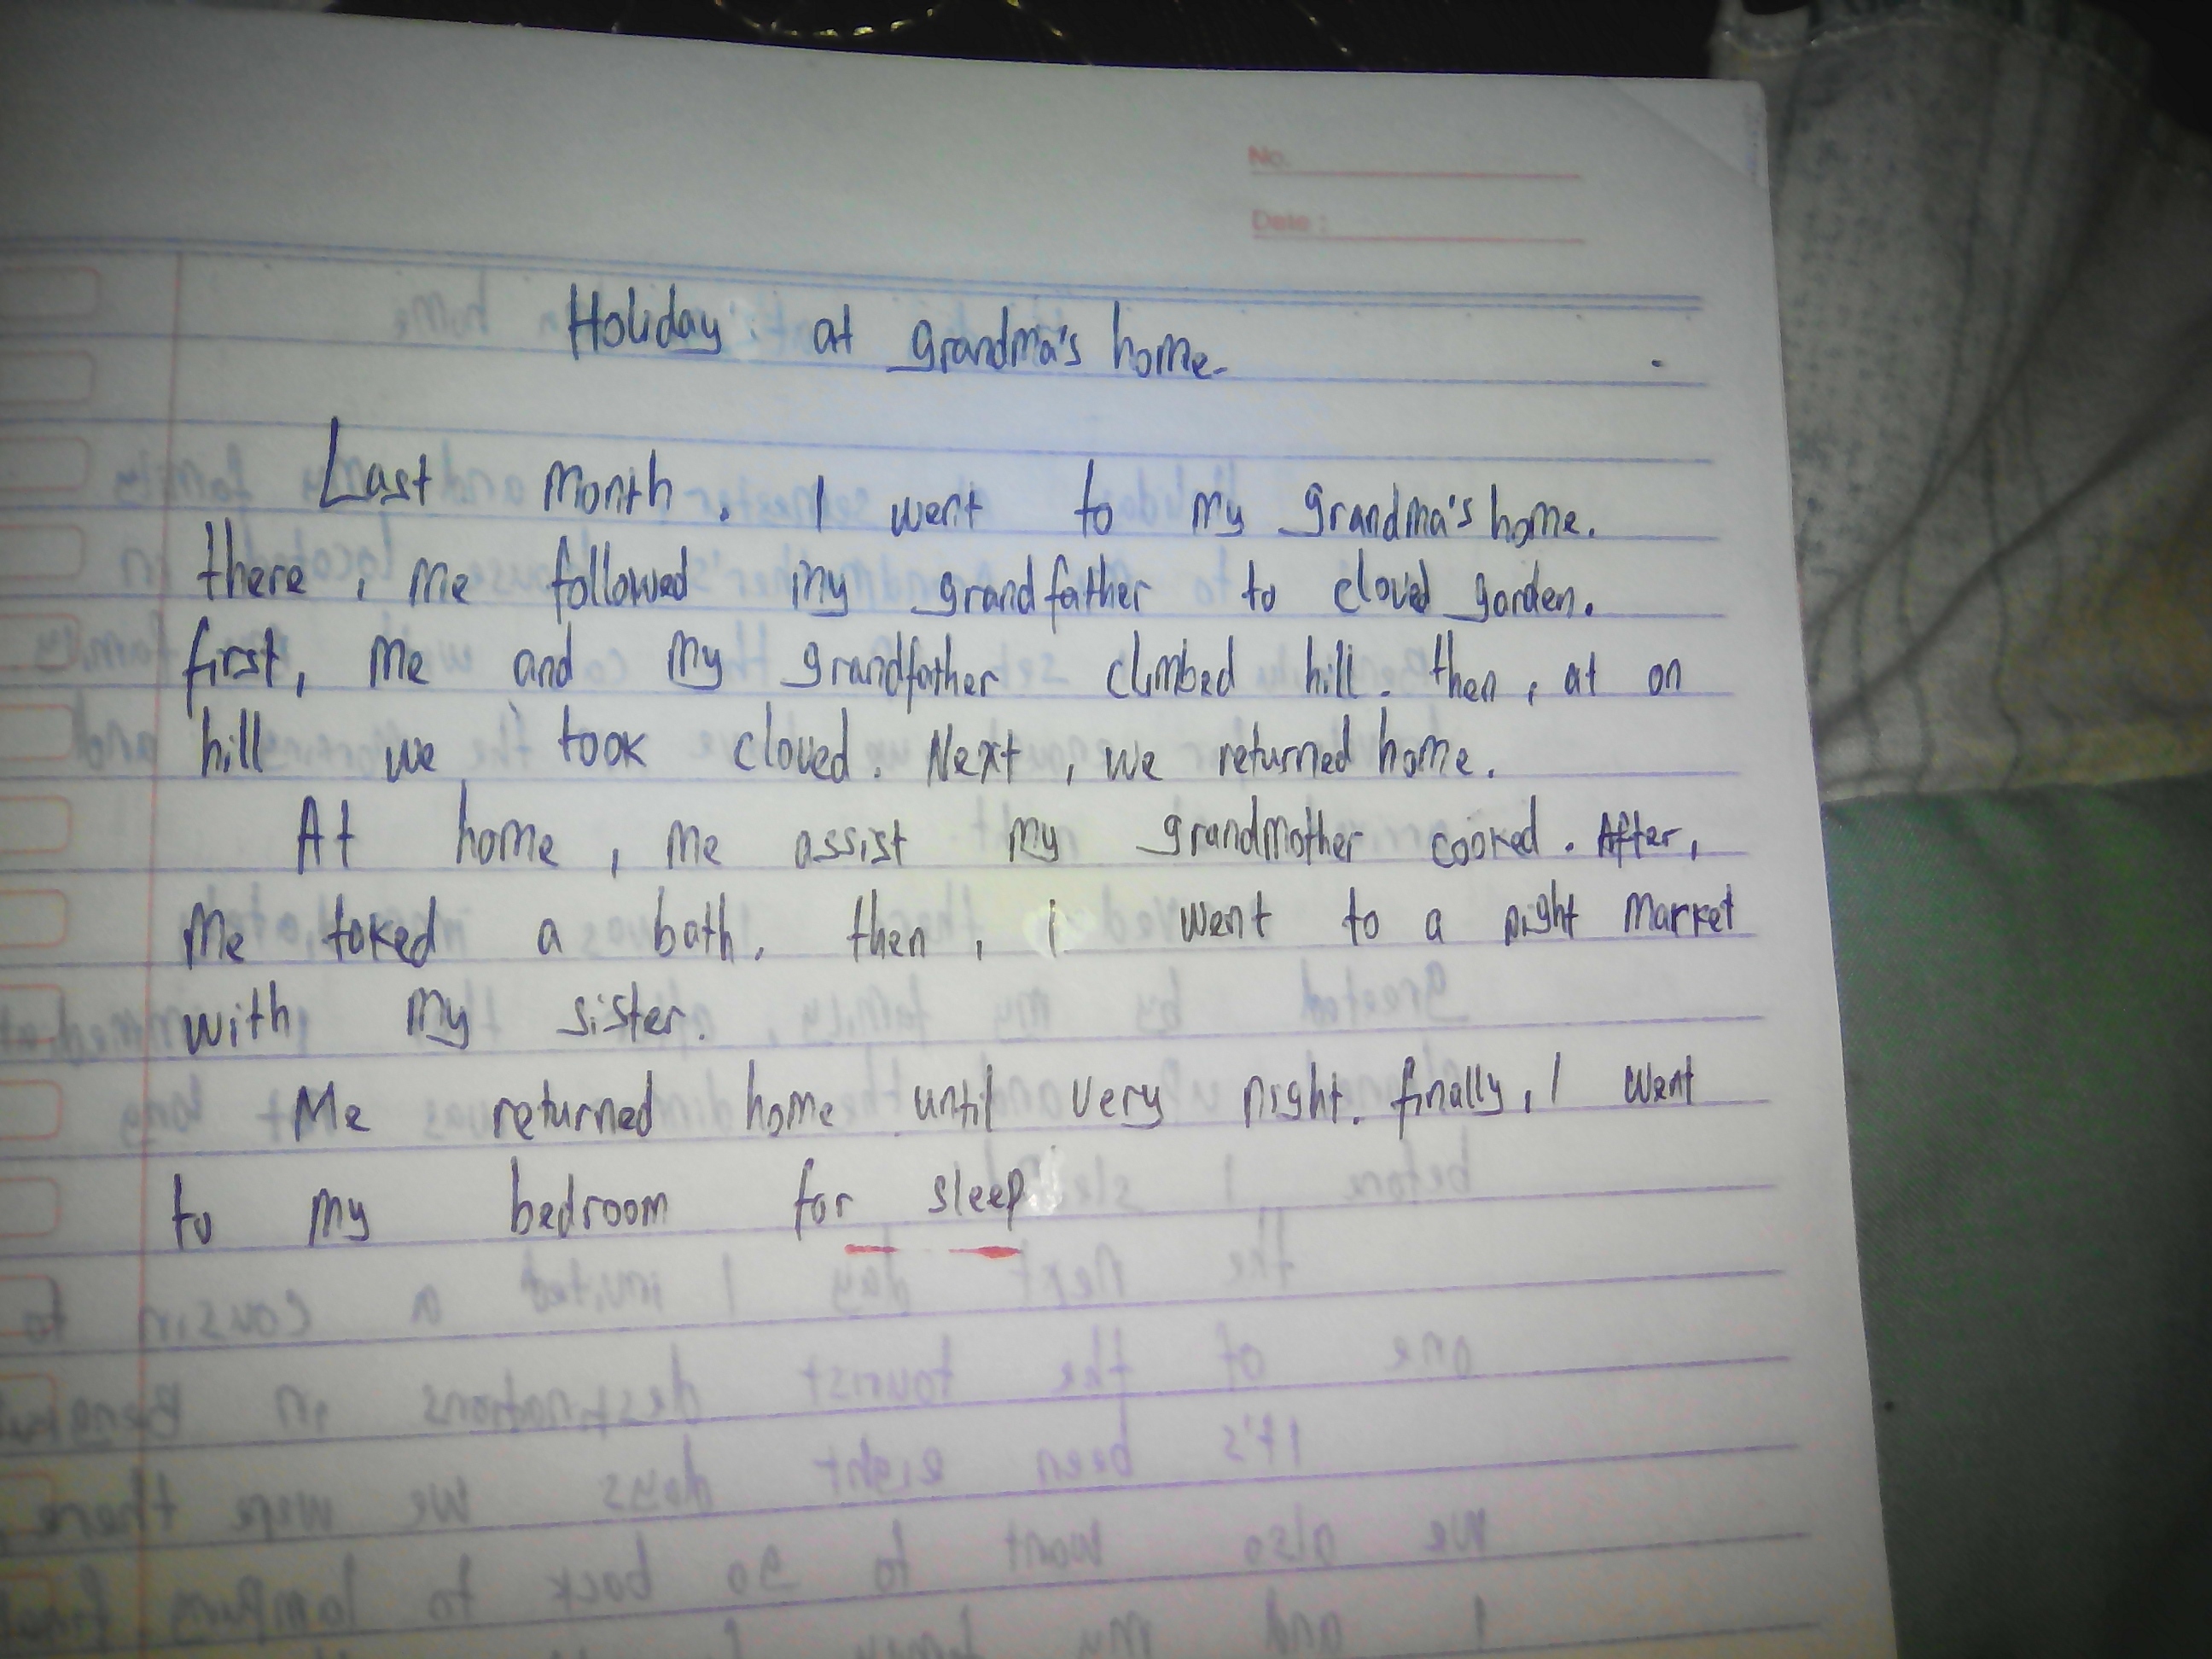 No.
Date :
Holiday at grandma's home.
Last month. I went to my grandma's home.
there, me followed my grandfather to cloved garden.
first, me and my grandfather climbed hill. then, at on
hill we took cloved. Next, we returned home.
At home, me assist my grandmother cooked. After,
me taked a bath. then, i went to a night market
with my sister.
Me returned home until very night. finally, I went
to my bedroom for sleep